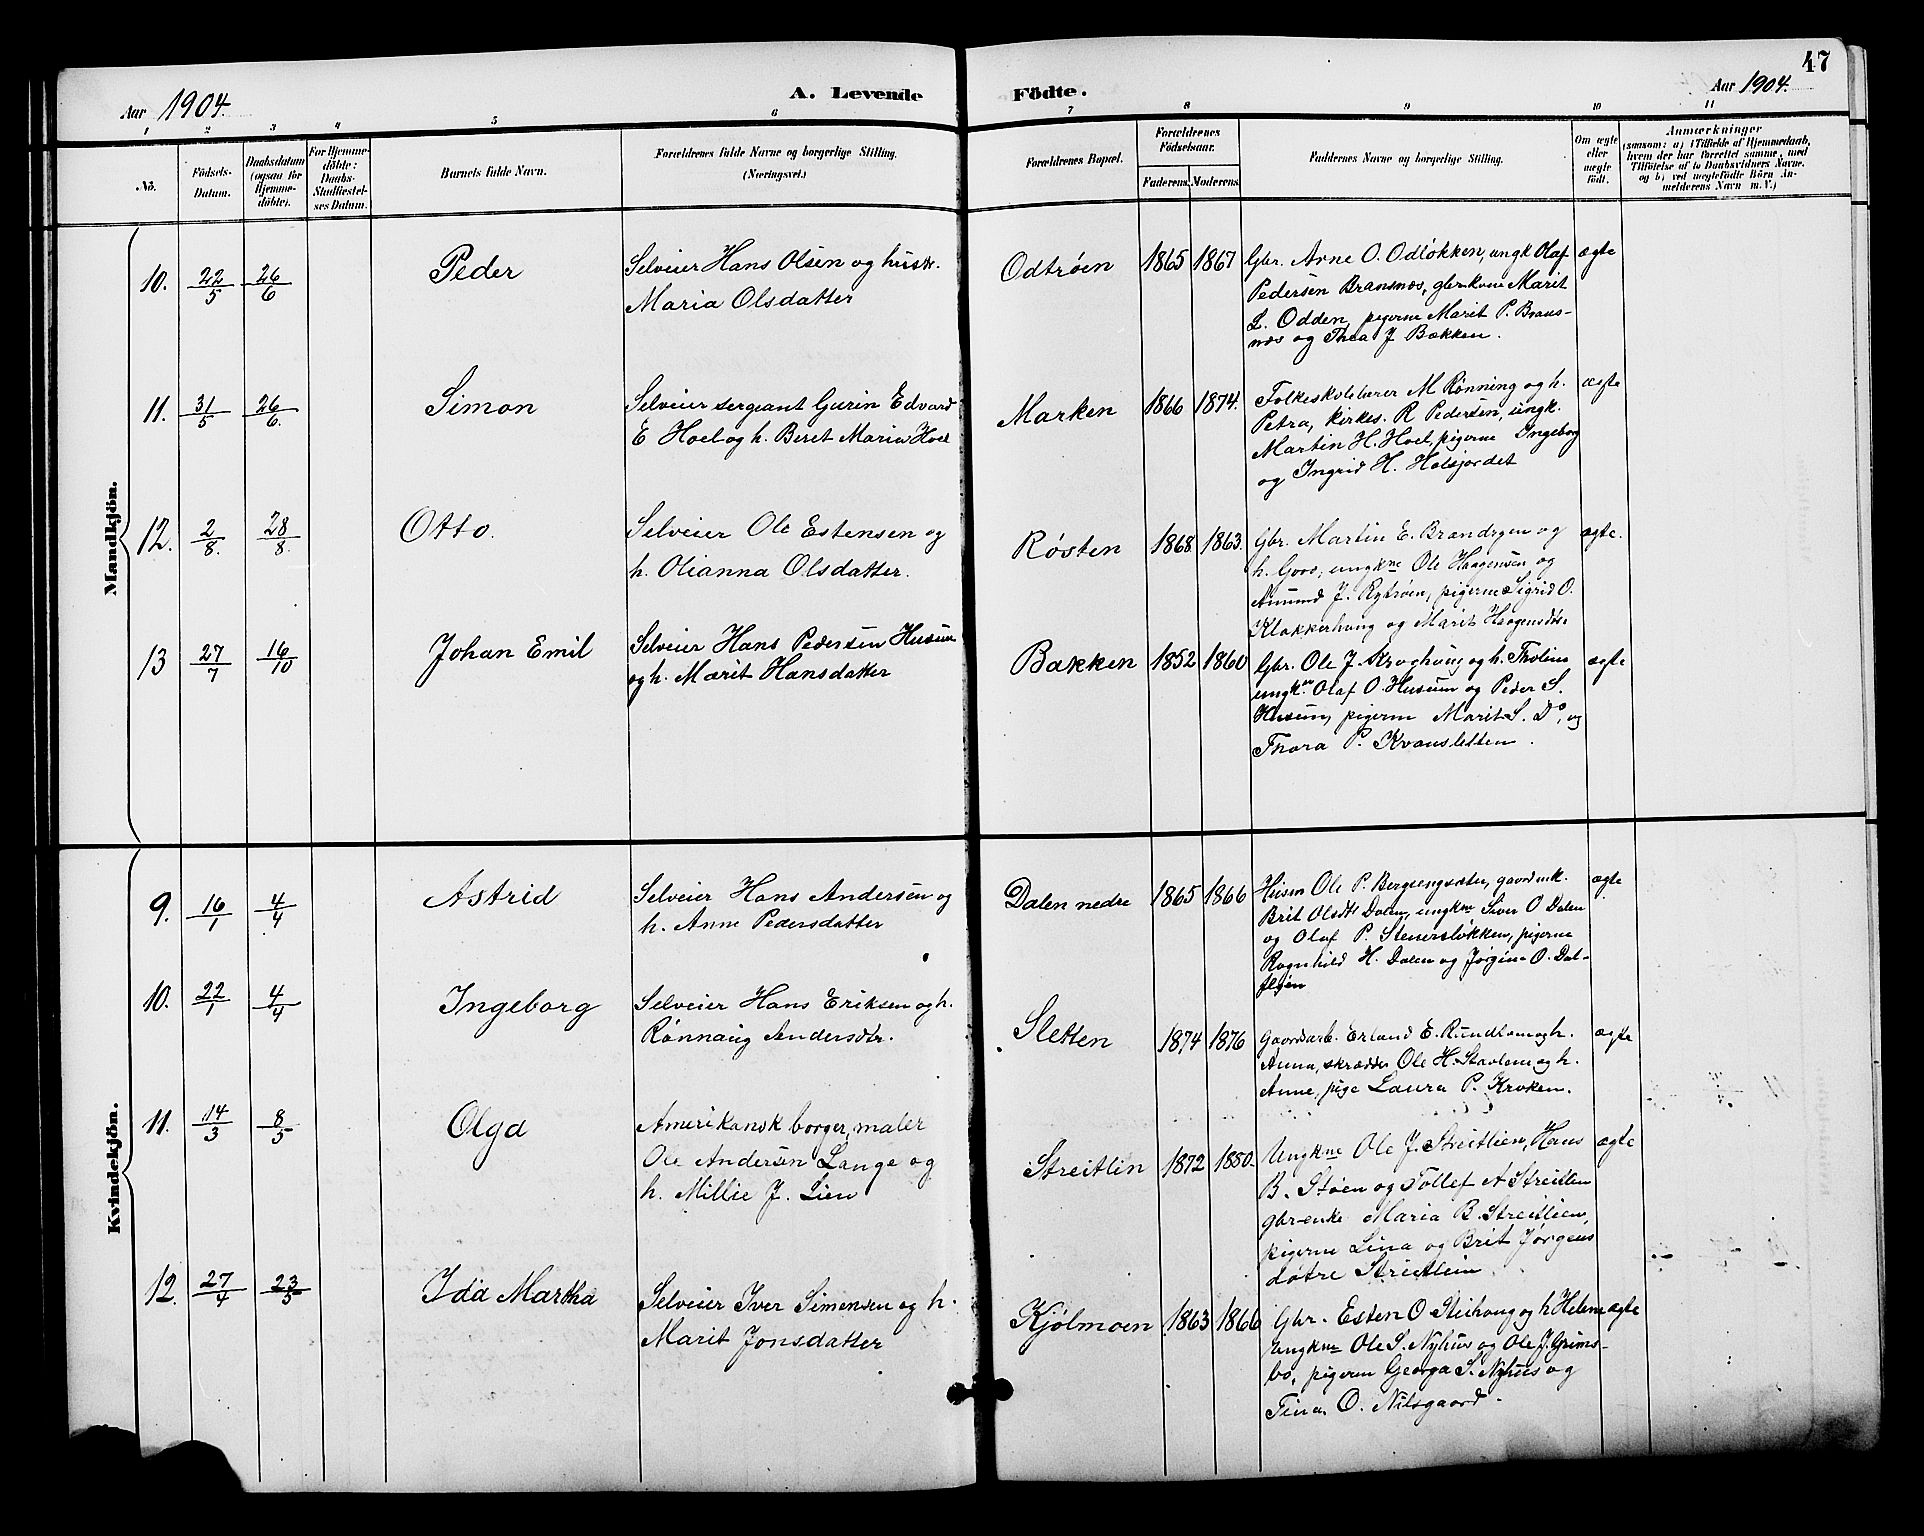 47
Aar 1904.
A. Levende
Födte.
Aar 1904.
1 2 3 4 5 6 7 8 9 10 11
No.
Födsels-
Datum.
Daabsdatum
(ogsaa for
Hjemme-
döbte).
For Hjemme-
döbte:
Daabs-
Stadfæstel-
ses Datum.
Barnets fulde Navn.
Forældrenes fulde Navne og borgerlige Stilling.
(Næringsvei.)
Forældrenes Bopæl.
Forældrenes
Födselsaar.
Faderens. Moderens.
Faddernes Navne og borgerlige Stilling.
Om ægte
eller
uægte
födt.
Anmærkninger
(saasom: a) i Tilfælde af Hjemmedaab,
hvem der har forrettet samme, med
Tilföielse af to Daabsvidners Navne.
og b) ved uægtefödte Börn An-
melderens Navn m. V.)
Mandkjön.
10. 22/5 26/6 Peder
Selveier Hans Olsen og hustr.
Maria Olsdatter
Odtrøen 1865 1867
Gbr. Arne O. Odløkken, ungk Olaf
Pedersen Bransnes, gbr-kone Marit
L. Odden, pigerne Marit P. Brans-
næs og Thea J Bækken.
ægte
11. 31/5 26/6. Simon
Selveier sergeant Gurin Edvard
E Hoel og h. Beret Maria Hoel
Marken 1866 1874.
Folkeskolelærer M Rønning og h.
Petra, kirkes. R Pedersen, ungk.
Martin H. Hoel, pigerne Ingeborg
og Ingrid H. Holsjordet
ægte
12. 2/8. 28/8. Otto.
Selveier Ole Estensen og
h. Olianna Olsdatter.
Røsten 1868 1863.
Gbr. Martin E. Brandryen og
h. Goro, ungkne Ole Haagensen og
Amund J. Rytrøen, pigerne Sigrid O.
Klokkerhaug og Marit Haagensdtr.
ægte.
13 27/7 16/10 Johan Emil
Selveier Hans Pedersen Husum
og h. Marit Hansdatter
Bakken 1852 1860
Gbr. Ole J. Kroghaug og h. Tholine
ungkne Olaf O. Husum og Peder S.
Husum, pigerne Marit S. Do, og
Thora P. Kvansletten.
ægte
Kvindekjön.
9. 16/1 4/4 Astrid
Selveier Hans Andersen og
h. Anne Pedersdatter
Dalen nedre 1865 1866
Husm Ole P. Bergsengsæter, gaardenk.
Brit Olsdtr Dalen, ungkne Siver O Dalen
og Olaf P. Stenersløkken, pigerne
Ragnhild H. Dalen og Jørgine O. Dal-
fløen
ægte
10. 22/1 4/4 Ingeborg
Selveier Hans Eriksen og h.
Rønnaug Andersdtr.
Sletten 1874 1876
Gaardarb. Erland E. Rundhom og h.
Anna, skrædder Ole H. Stavlem og h.
Anne, pige Laura P. Kroken.
ægte
11. 14/3 8/5 Olga
Amerikansk borger, maler
Ole Andersen Lange og
h. Millie J. Lien
Streitlin 1872 1850.
Ungkne Ole J. Streitlien, Hans
B. Støen og Tollef A Streitlien
gbr-enke Maria B. Streitlien,
pigerne Lina og Brit Jørgens
døtre Streitlein
ægte
12. 27/4 23/5 Ida Martha
Selveier Iver Simensen og h.
Marit Jonsdatter
Kjølmoen 1863 1866
Gbr. Esten O Steihaug og h Helene
ungkne Ole S. Nyhus og Ole J. Grims-
bo, pigerne Georga S. Nyhus og
Tina O. Nilsgaard.
ægte